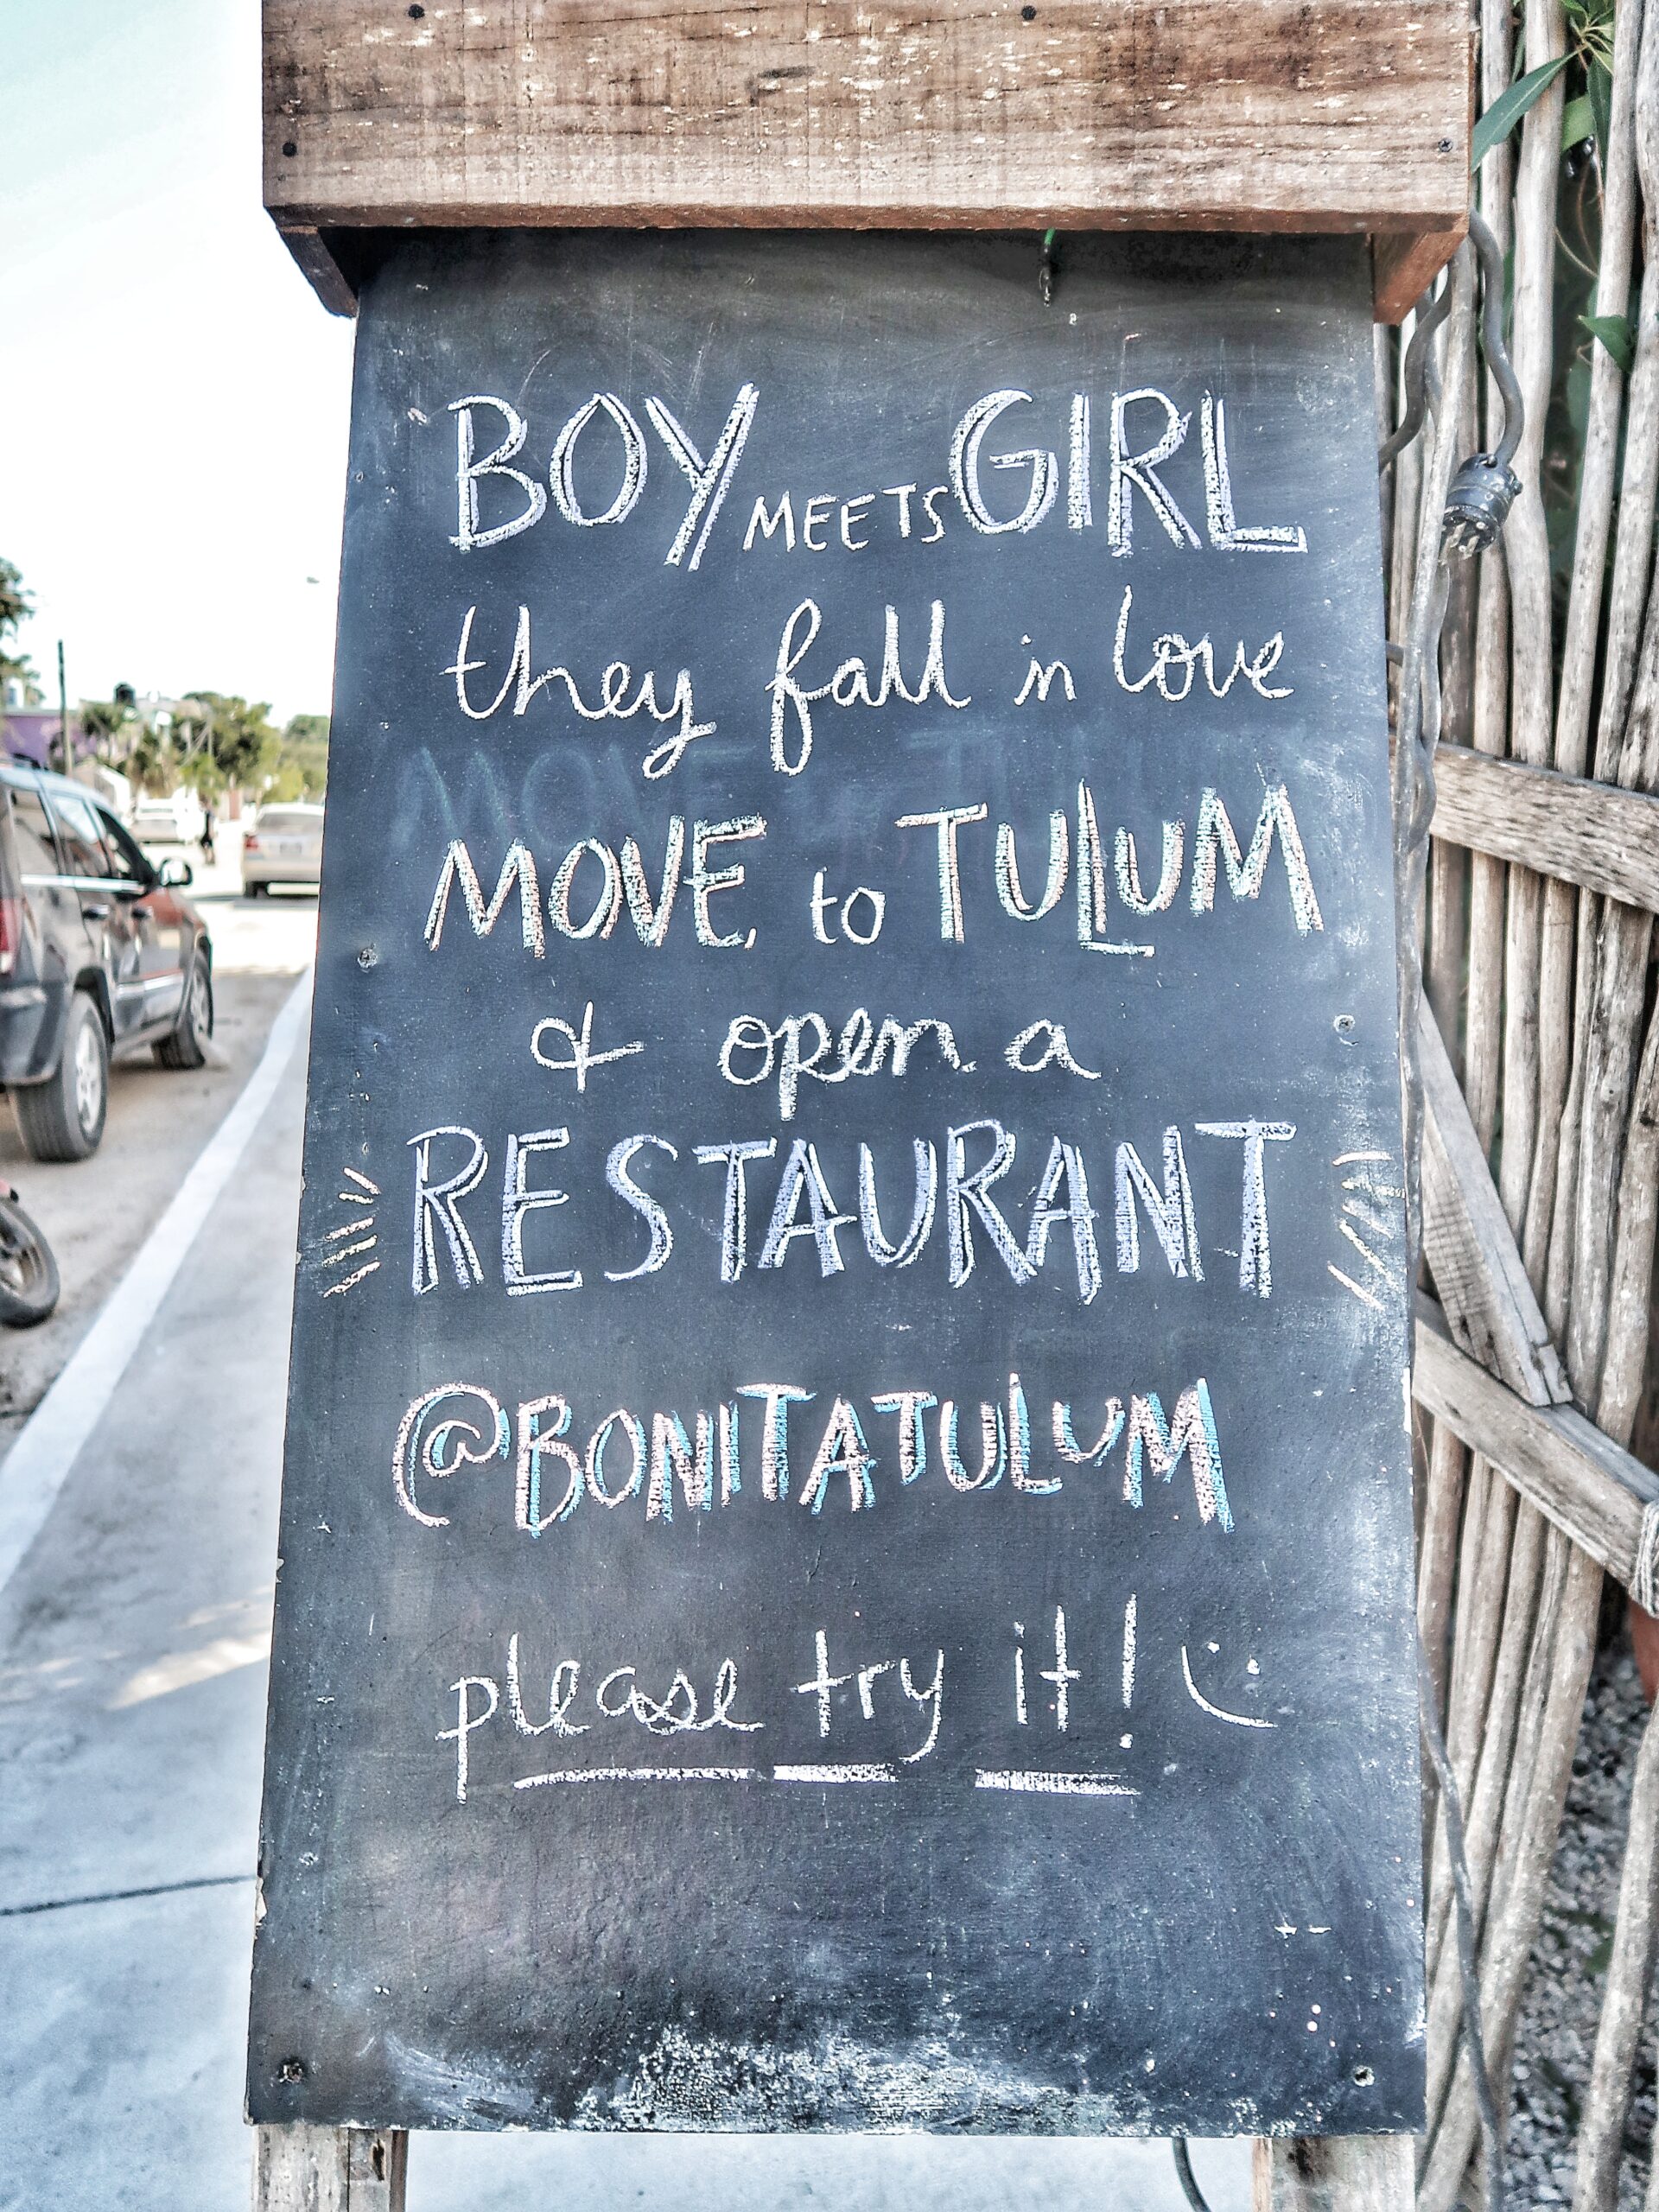 BOY MEETS GIRL
they fall in love
MOVE to TULUM
& open a
RESTAURANT
@BONITATULUM
please try it! :)